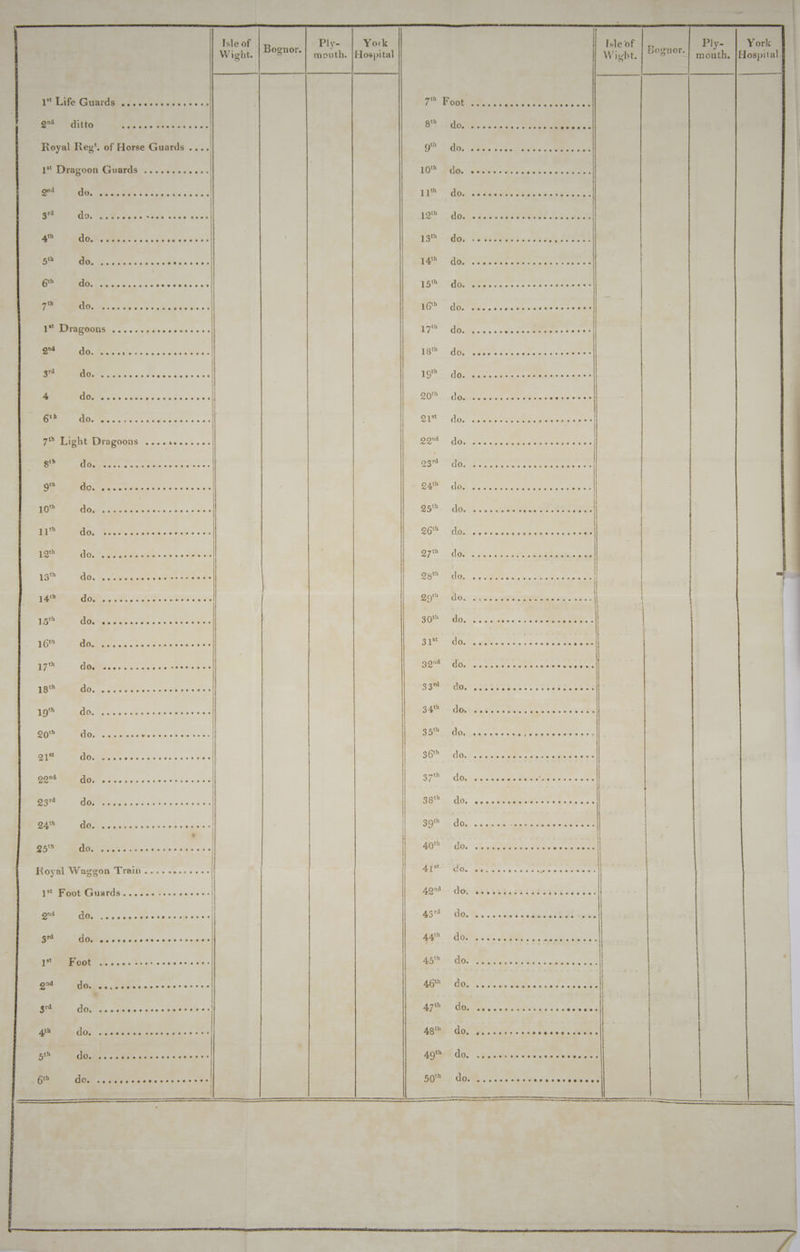 Isle of Wight. Bognor. Plymouth. York Hospital
1st Life Guards ................
2nd ditto ................
Royal Regt. of Horse Guards ....
1st Dragoon Guards ............
2nd do. ................
3rd do. ................
4th do. ................
5th do. ................
6th do. ................
7th do. ................
1st Dragoons ................
2nd do. ................
3rd do. ................
4 do. ................
6th do. ................
7th Light Dragoons ............
8th do. ................
9th do. ................
10th do. ................
11th do. ................
12th do. ................
13th do. ................
14th do. ................
15th do. ................
16th do. ................
17th do. ................
18th do. ................
19th do. ................
20th do. ................
21st do. ................
22nd do. ................
23rd do. ................
24th do. ................
25th do. ................
Royal Waggon Train ............
1st Foot Guards ................
2nd do. ................
3rd do. ................
1st Foot ................
2nd do. ................
3rd do. ................
4th do. ................
5th do. ................
6th do. ................
Isle of Wight. Bognor. Plymouth. York Hospital
7th Foot ................
8th do. ................
9th do. ................
10th do. ................
11th do. ................
12th do. ................
13th do. ................
14th do. ................
15th do. ................
16th do. ................
17th do. ................
18th do. ................
19th do. ................
20th do. ................
21st do. ................
22nd do. ................
23rd do. ................
24th do. ................
25th do. ................
26th do. ................
27th do. ................
28th do. ................
29th do. ................
30th do. ................
31st do. ................
32nd do. ................
33rd do. ................
34th do. ................
35th do. ................
36th do. ................
37th do. ................
38th do. ................
39th do. ................
40th do. ................
41st do. ................
42nd do. ................
43rd do. ................
44th do. ................
45th do. ................
46th do. ................
47th do. ................
48th do. ................
49th do. ................
50th do. ................